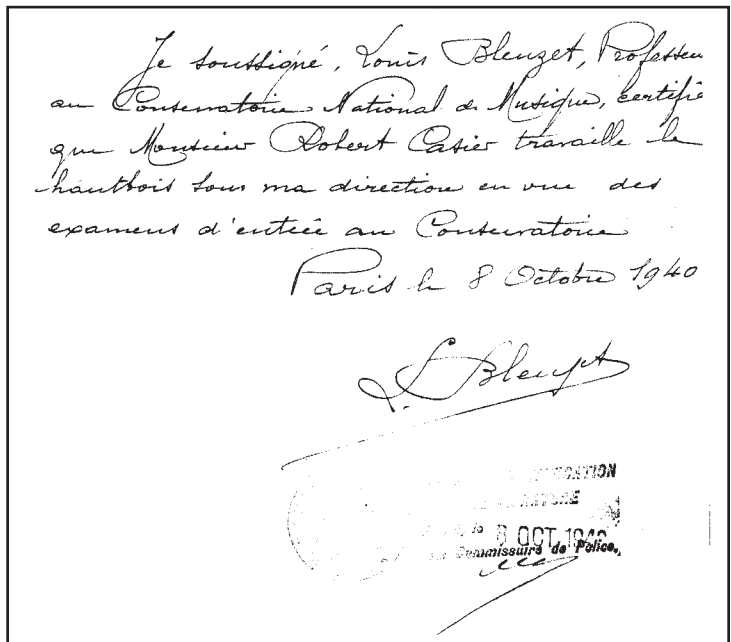 Je soussigné, Louis Bleuzet, Professeu
au Conservatoire National de Musique, certifie
que Monsieur Robert Casier travaille le
hautbois sous ma direction en vue des
examens d'entrée au Conservatoire
Paris le 8 Octobre 1940
L. Bleuzet
CATION
le 8 OCT. 1940
Commissaire de Police,